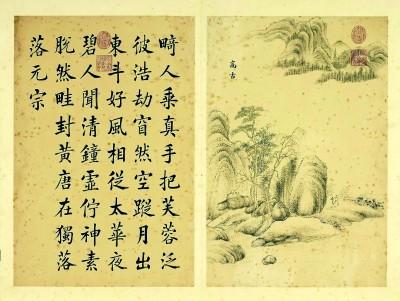 畸人乘真手把芙蓉泛
彼浩劫窅然空蹤月出
東斗好風相從太華夜
碧人聞清鐘虛佇神素
脫然畦封黃唐在獨落
落元宗
高古